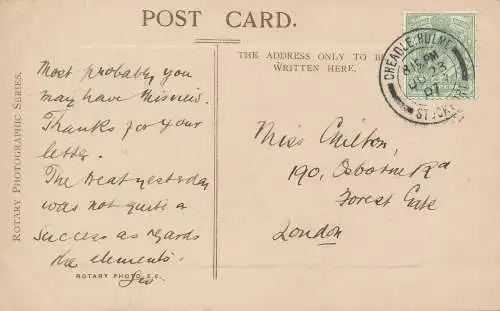 POST CARD.
THE ADDRESS ONLY TO BE
WRITTEN HERE.
ROTARY PHOTOGRAPHIC SERIES.
Most probably you
may have
Thanks for your
letter.
The treat yesterday
was not quite a
success as regards
the elements.
Geo
ROTARY PHOTO, E.C.
CHEADLE HULME
8.15 PM
07
STOCKPORT
Miss Chilton,
190, Osborne Rd
Forest Gate
London